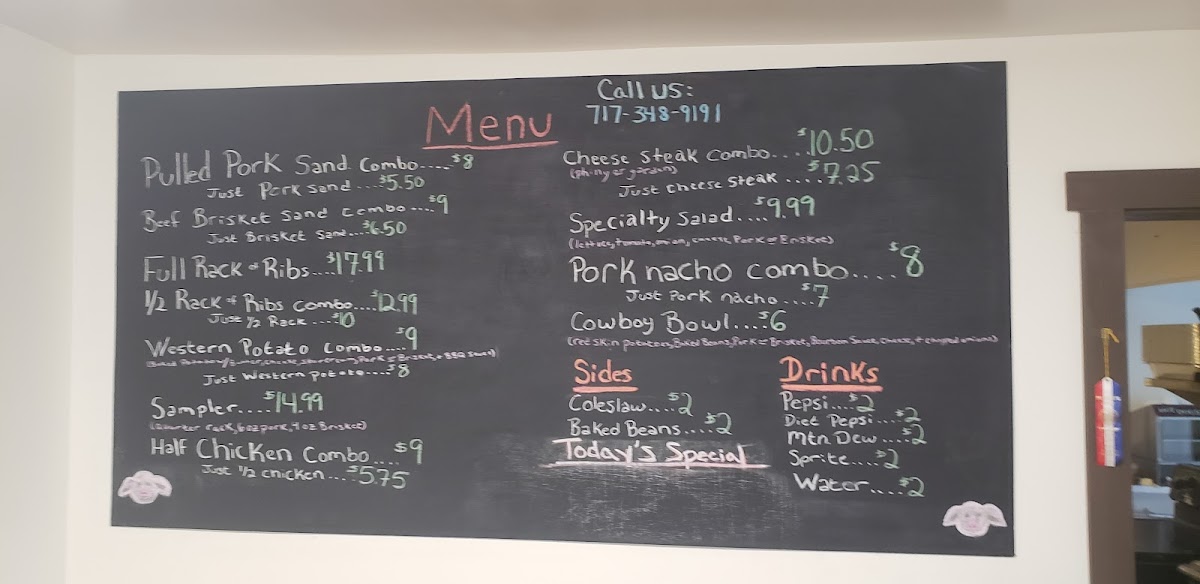 Menu
Call us:
717-348-9191
Pulled Pork Sand Combo....$8
Just Pork Sand...$5.50
Beef Brisket Sand Combo....$9
Just Brisket Sand...$6.50
Full Rack of Ribs...$17.99
1/2 Rack of Ribs Combo....$12.99
Just 1/2 Rack....$10
Western Potato Combo...$9
Just Western Potato....$8
Sampler....$14.99
(Quarter rack, 6oz pork, 4oz Brisket)
Half Chicken Combo....$9
Just 1/2 Chicken...$5.75
Cheese Steak Combo....$10.50
Just Cheese Steak....$7.25
Specialty Salad....$9.99
(lettuce, tomato, onion, cheese, Pork or Brisket)
Pork nacho combo....$8
Just Pork nacho....$7
Cowboy Bowl...$6
(red skin potatoes, Baked Beans, Pork or Brisket, Bourbon Sauce, Cheese, + chopped onions)
Sides
Coleslaw....$2
Baked Beans....$2
Today's Special
Drinks
Pepsi...$2
Diet Pepsi...$2
Mtn Dew....$2
Sprite....$2
Water....$2